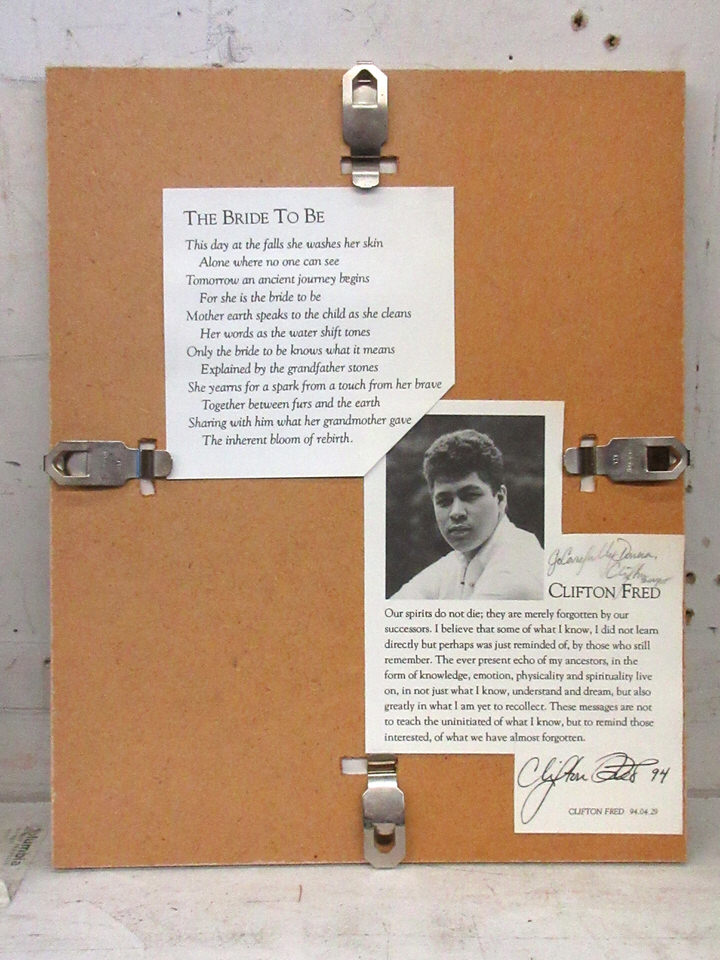 THE BRIDE TO BE
This day at the falls she washes her skin
Alone where no one can see
Tomorrow an ancient journey begins
For she is the bride to be
Mother earth speaks to the child as she cleans
Her words as the water shift tones
Only the bride to be knows what it means
Explained by the grandfather stones
She yearns for a spark from a touch from her brave
Together between furs and the earth
Sharing with him what her grandmother gave
The inherent bloom of rebirth.
CLIFTON FRED
Our spirits do not die; they are merely forgotten by our
successors. I believe that some of what I know, I did not learn
directly but perhaps was just reminded of, by those who still
remember. The ever present echo of my ancestors, in the
form of knowledge, emotion, physicality and spirituality live
on, in not just what I know, understand and dream, but also
greatly in what I am yet to recollect. These messages are not
to teach the uninitiated of what I know, but to remind those
interested, of what we have almost forgotten.
Clifton Fred 94
CLIFTON FRED 94.04.29